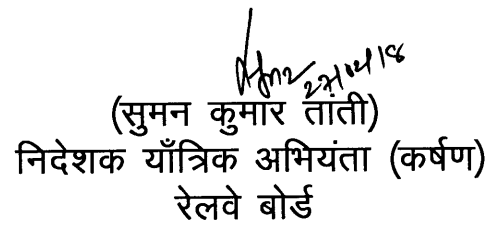 27/04/18
(सुमन कुमार तांती)
निदेशक याँत्रिक अभियंता (कर्षण)
रेलवे बोर्ड